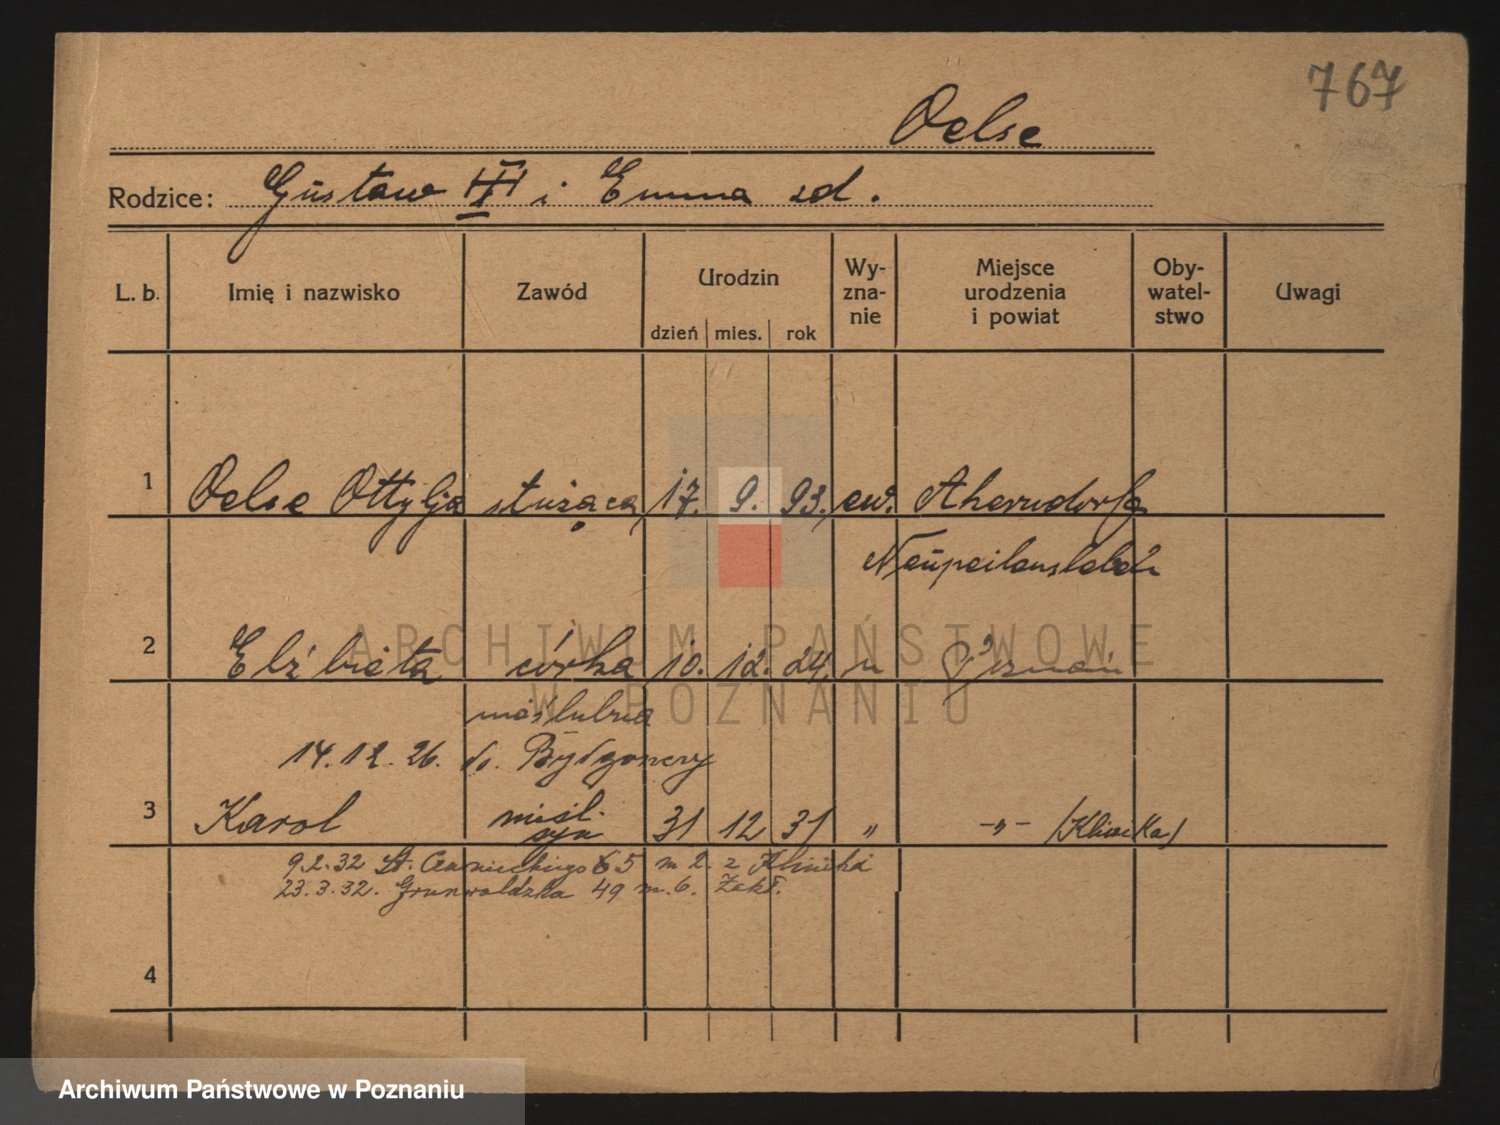 767
Oelse
Rodzice: Gustaw i Emma zd.
L. b. Imię i nazwisko Zawód Urodzin dzień mies. rok Wy-zna-nie Miejsce urodzenia i powiat Oby-watel-stwo Uwagi
1 Oelse Ottylja służąca 17. 9. 93. ew.
2 Elżbieta córka 10. 12. 24. " Poznań
nieślubna
14.12.26. do Bydgoszczy
3 Karol nieśl. syn 31 12 31 " -"- (Klinika)
9.2.32 St. Czarnieckiego 65 m 2. z Klinika
23.3.32. Grunwaldzka 49 m. 6. Zakł.
4
ARCHIWUM PAŃSTWOWE
W POZNANIU
Archiwum Państwowe w Poznaniu